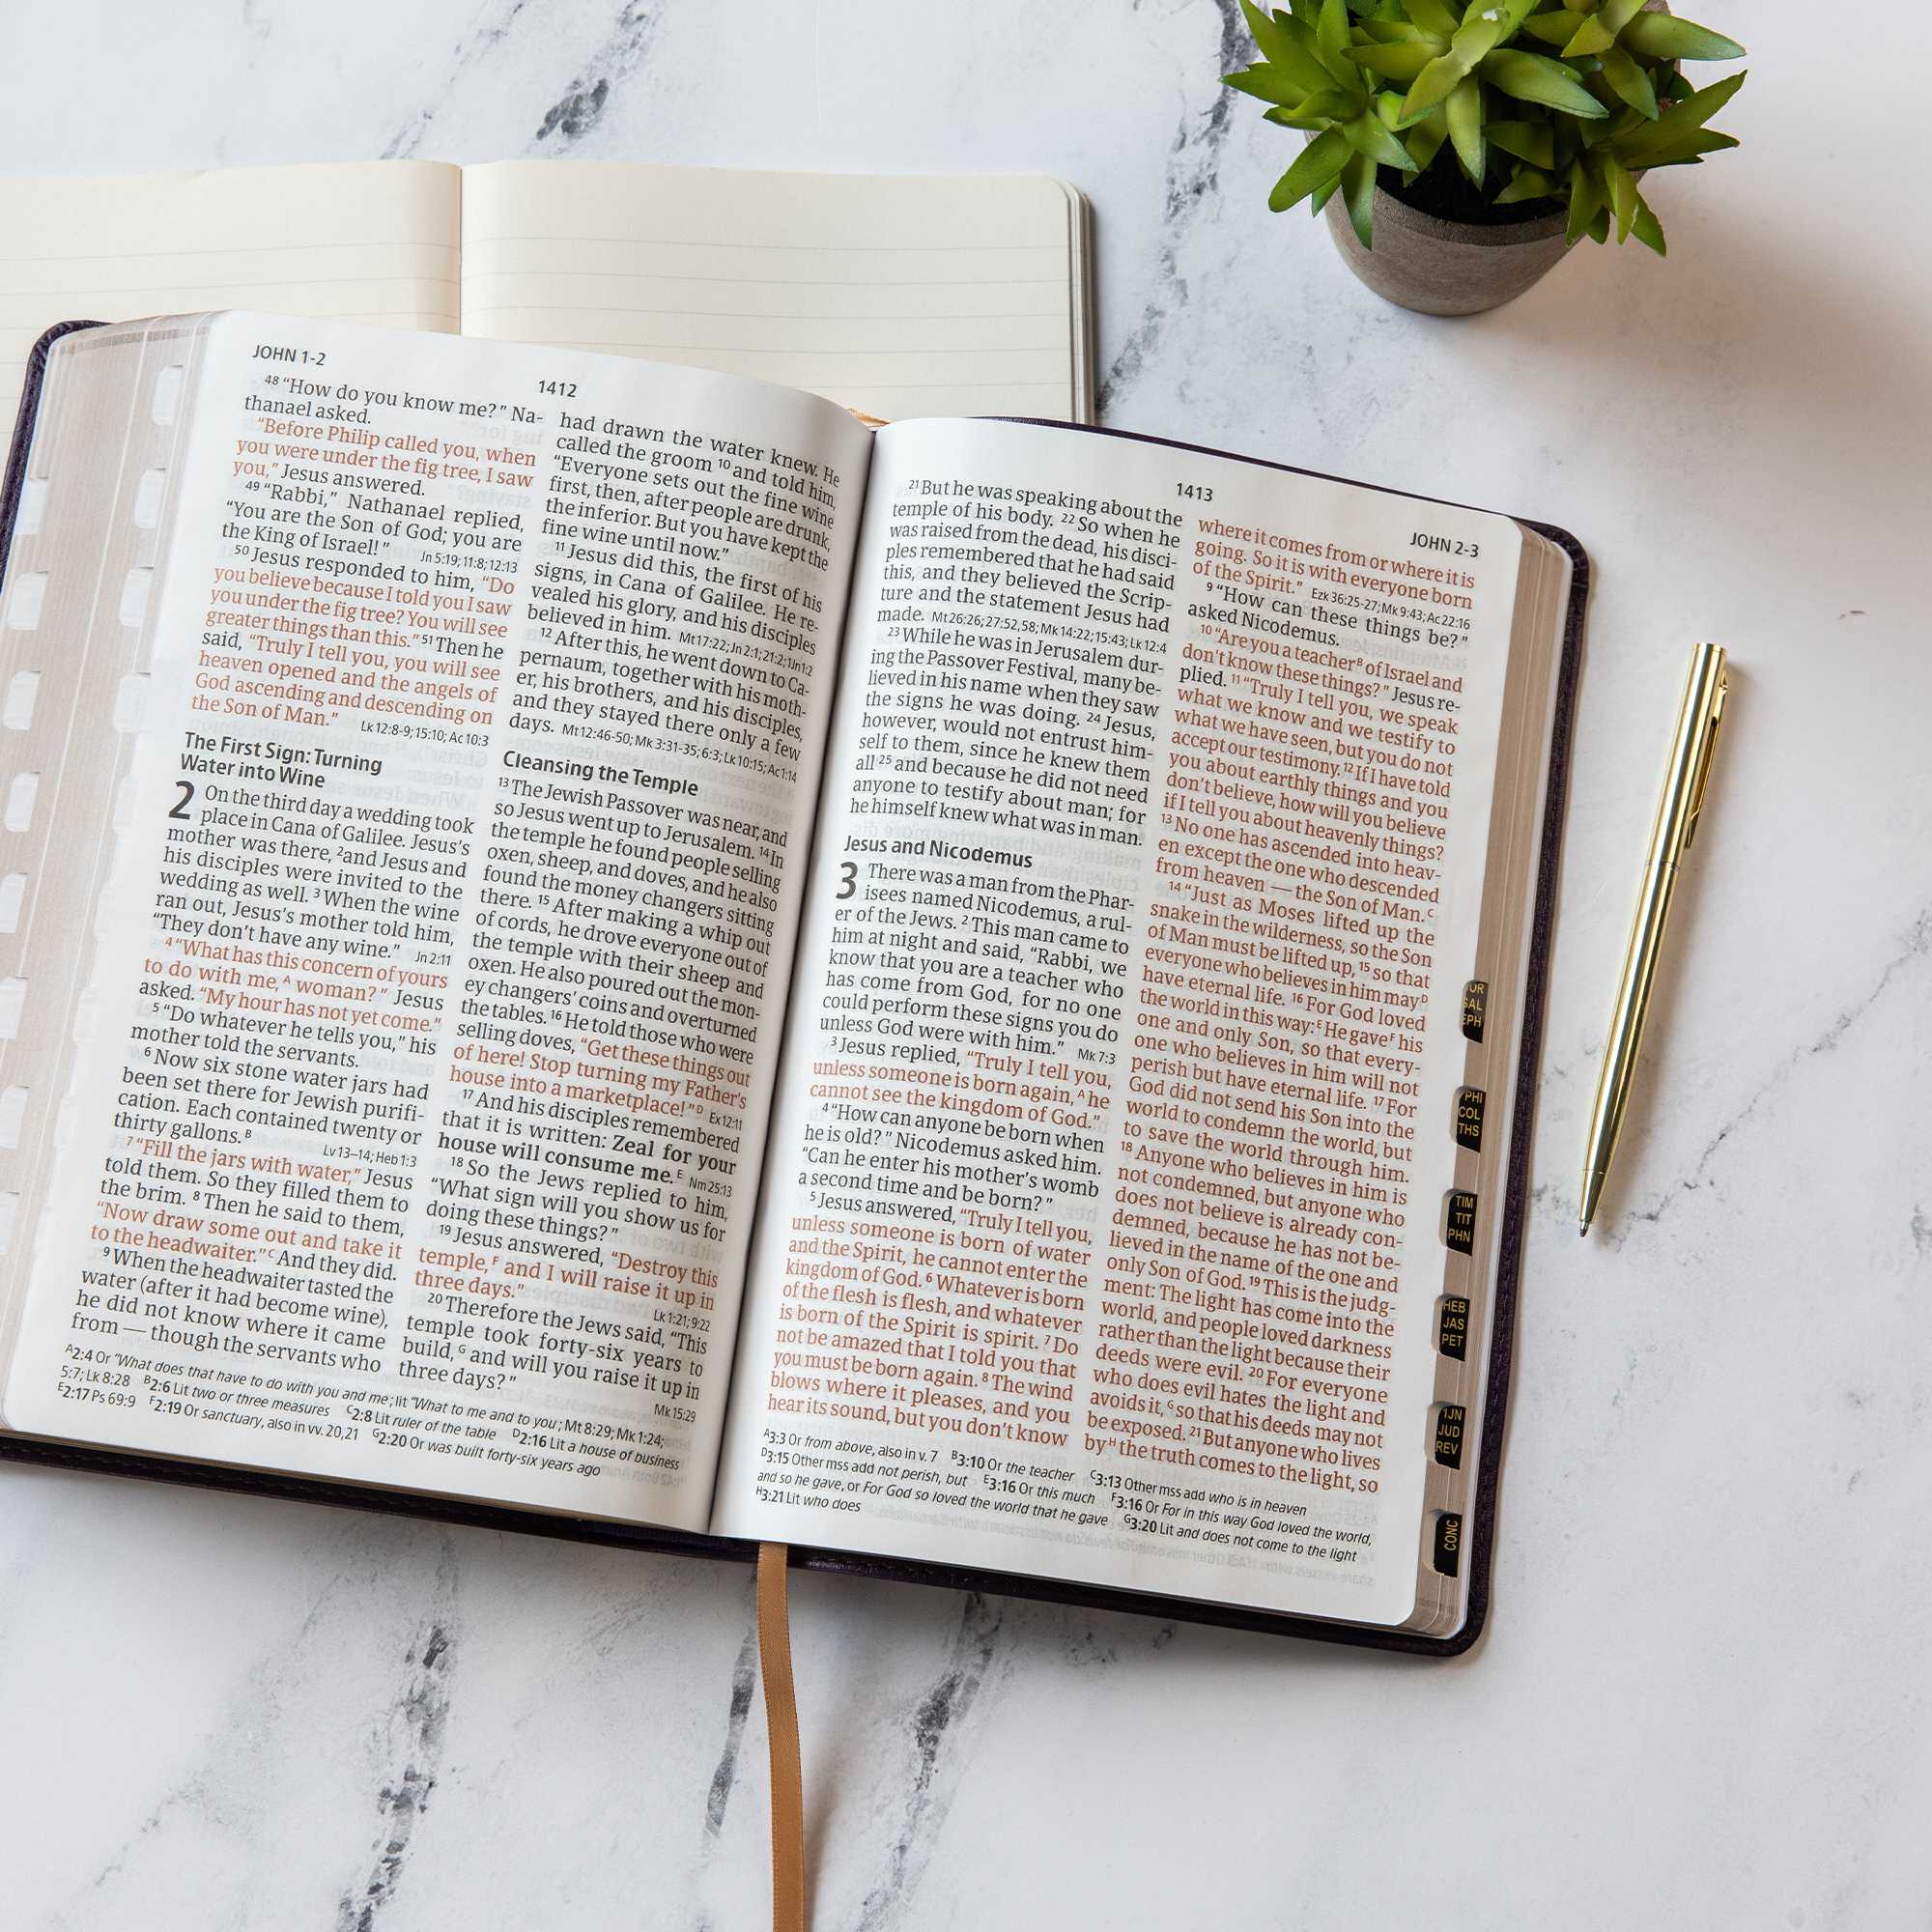 JOHN 1-2
1412
48 “How do you know me?” Na-
thanael asked.
“Before Philip called you, when
you were under the fig tree, I saw
you,” Jesus answered.
49 “Rabbi,” Nathanael replied,
“You are the Son of God; you are
the King of Israel!”
Jn 5:19; 11:8; 12:13
50 Jesus responded to him, “Do
you believe because I told you I saw
you under the fig tree? You will see
greater things than this.” 51 Then he
said, “Truly I tell you, you will see
heaven opened and the angels of
God ascending and descending on
the Son of Man.”
Lk 12:8-9; 15:10; Ac 10:3
The First Sign: Turning
Water into Wine
2 On the third day a wedding took
place in Cana of Galilee. Jesus’s
mother was there, 2 and Jesus and
his disciples were invited to the
wedding as well. 3 When the wine
ran out, Jesus’s mother told him,
“They don’t have any wine.” Jn 2:11
4 “What has this concern of yours
to do with me, A woman?” Jesus
asked. “My hour has not yet come.”
5 “Do whatever he tells you,” his
mother told the servants.
6 Now six stone water jars had
been set there for Jewish purifi-
cation. Each contained twenty or
thirty gallons. B
Lv 13–14; Heb 1:3
7 “Fill the jars with water,” Jesus
told them. So they filled them to
the brim. 8 Then he said to them,
“Now draw some out and take it
to the headwaiter.” C And they did.
9 When the headwaiter tasted the
water (after it had become wine),
he did not know where it came
from — though the servants who
had drawn the water knew. He
called the groom 10 and told him,
“Everyone sets out the fine wine
first, then, after people are drunk,
the inferior. But you have kept the
fine wine until now.”
11 Jesus did this, the first of his
signs, in Cana of Galilee. He re-
vealed his glory, and his disciples
believed in him. Mt 17:22; Jn 2:1; 21:2; 1Jn 1:2
12 After this, he went down to Ca-
pernaum, together with his moth-
er, his brothers, and his disciples,
and they stayed there only a few
days. Mt 12:46-50; Mk 3:31-35; 6:3; Lk 10:15; Ac 1:14
Cleansing the Temple
13 The Jewish Passover was near, and
so Jesus went up to Jerusalem. 14 In
the temple he found people selling
oxen, sheep, and doves, and he also
found the money changers sitting
there. 15 After making a whip out
of cords, he drove everyone out of
the temple with their sheep and
oxen. He also poured out the mon-
ey changers’ coins and overturned
the tables. 16 He told those who were
selling doves, “Get these things out
of here! Stop turning my Father’s
house into a marketplace!” D Ex 12:11
17 And his disciples remembered
that it is written: Zeal for your
house will consume me. E Nm 25:13
18 So the Jews replied to him,
“What sign will you show us for
doing these things?”
19 Jesus answered, “Destroy this
temple, F and I will raise it up in
three days.”
Lk 1:21; 9:22
20 Therefore the Jews said, “This
temple took forty-six years to
build, G and will you raise it up in
three days?”
Mk 15:29
A 2:4 Or “What does that have to do with you and me; lit “What to me and to you; Mt 8:29; Mk 1:24;
5:7; Lk 8:28 B 2:6 Lit two or three measures C 2:8 Lit ruler of the table D 2:16 Lit a house of business
E 2:17 Ps 69:9 F 2:19 Or sanctuary, also in vv. 20,21 G 2:20 Or was built forty-six years ago
1413
JOHN 2-3
21 But he was speaking about the
temple of his body. 22 So when he
was raised from the dead, his disci-
ples remembered that he had said
this, and they believed the Scrip-
ture and the statement Jesus had
made. Mt 26:26; 27:52,58; Mk 14:22; 15:43; Lk 12:4
23 While he was in Jerusalem dur-
ing the Passover Festival, many be-
lieved in his name when they saw
the signs he was doing. 24 Jesus,
however, would not entrust him-
self to them, since he knew them
all 25 and because he did not need
anyone to testify about man; for
he himself knew what was in man.
Jesus and Nicodemus
3 There was a man from the Phar-
isees named Nicodemus, a rul-
er of the Jews. 2 This man came to
him at night and said, “Rabbi, we
know that you are a teacher who
has come from God, for no one
could perform these signs you do
unless God were with him.” Mk 7:3
3 Jesus replied, “Truly I tell you,
unless someone is born again, A he
cannot see the kingdom of God.”
4 “How can anyone be born when
he is old?” Nicodemus asked him.
“Can he enter his mother’s womb
a second time and be born?”
5 Jesus answered, “Truly I tell you,
unless someone is born of water
and the Spirit, he cannot enter the
kingdom of God. 6 Whatever is born
of the flesh is flesh, and whatever
is born of the Spirit is spirit. 7 Do
not be amazed that I told you that
you must be born again. 8 The wind
blows where it pleases, and you
hear its sound, but you don’t know
where it comes from or where it is
going. So it is with everyone born
of the Spirit.” Ezk 36:25-27; Mk 9:43; Ac 22:16
9 “How can these things be?”
asked Nicodemus.
10 “Are you a teacher B of Israel and
don’t know these things?” Jesus re-
plied. 11 “Truly I tell you, we speak
what we know and we testify to
what we have seen, but you do not
accept our testimony. 12 If I have told
you about earthly things and you
don’t believe, how will you believe
if I tell you about heavenly things?
13 No one has ascended into heav-
en except the one who descended
from heaven — the Son of Man. C
14 “Just as Moses lifted up the
snake in the wilderness, so the Son
of Man must be lifted up, 15 so that
everyone who believes in him may D
have eternal life. 16 For God loved
the world in this way: E He gave F his
one and only Son, so that every-
one who believes in him will not
perish but have eternal life. 17 For
God did not send his Son into the
world to condemn the world, but
to save the world through him.
18 Anyone who believes in him is
not condemned, but anyone who
does not believe is already con-
demned, because he has not be-
lieved in the name of the one and
only Son of God. 19 This is the judg-
ment: The light has come into the
world, and people loved darkness
rather than the light because their
deeds were evil. 20 For everyone
who does evil hates the light and
avoids it, G so that his deeds may not
be exposed. 21 But anyone who lives
by H the truth comes to the light, so
A 3:3 Or from above, also in v. 7 B 3:10 Or the teacher C 3:13 Other mss add who is in heaven
D 3:15 Other mss add not perish, but E 3:16 Or this much F 3:16 Or For in this way God loved the world,
and so he gave, or For God so loved the world that he gave G 3:20 Lit and does not come to the light
H 3:21 Lit who does
GAL
EPH
PHI
COL
THS
TIM
TIT
PHN
HEB
JAS
PET
1JN
JUD
REV
CONC